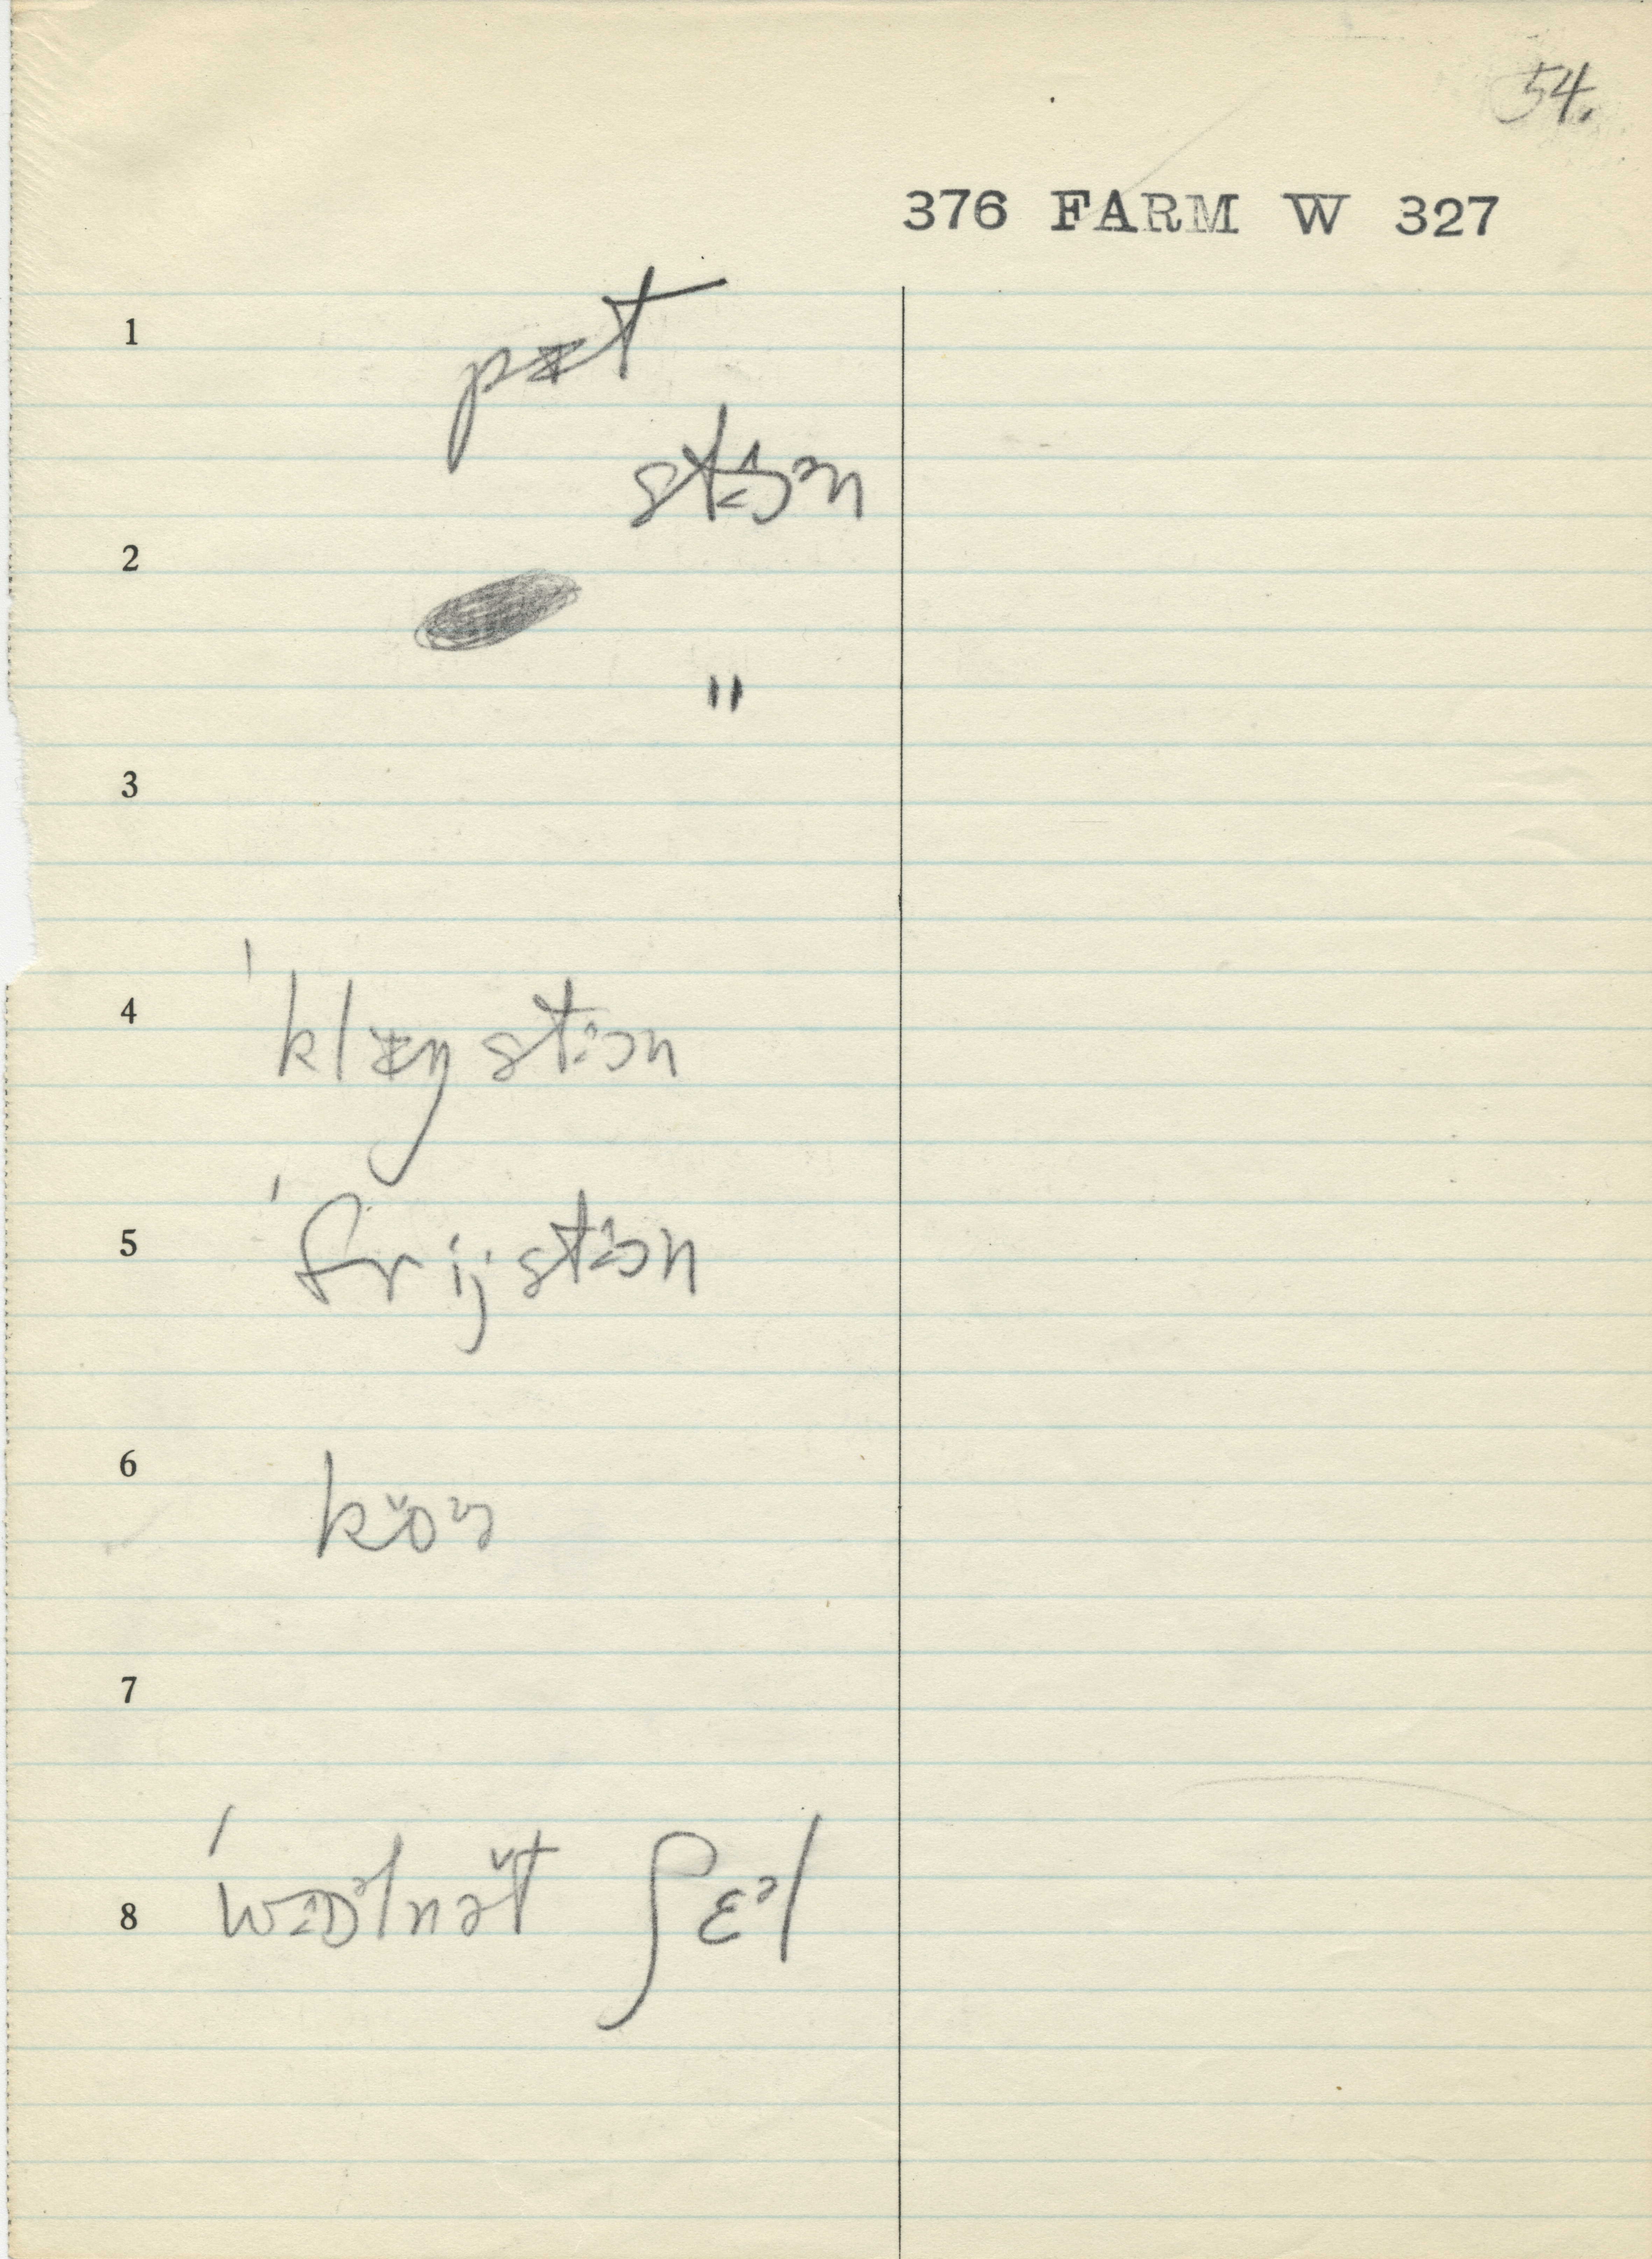 54.
376 FARM W 327
1
pɪt
stɔən
2
"
3
4
ˈklɪŋ stɔn
5
ˈfrij stɔn
6
koɚ
7
8
ˈwɒəlnət ʃɛəl